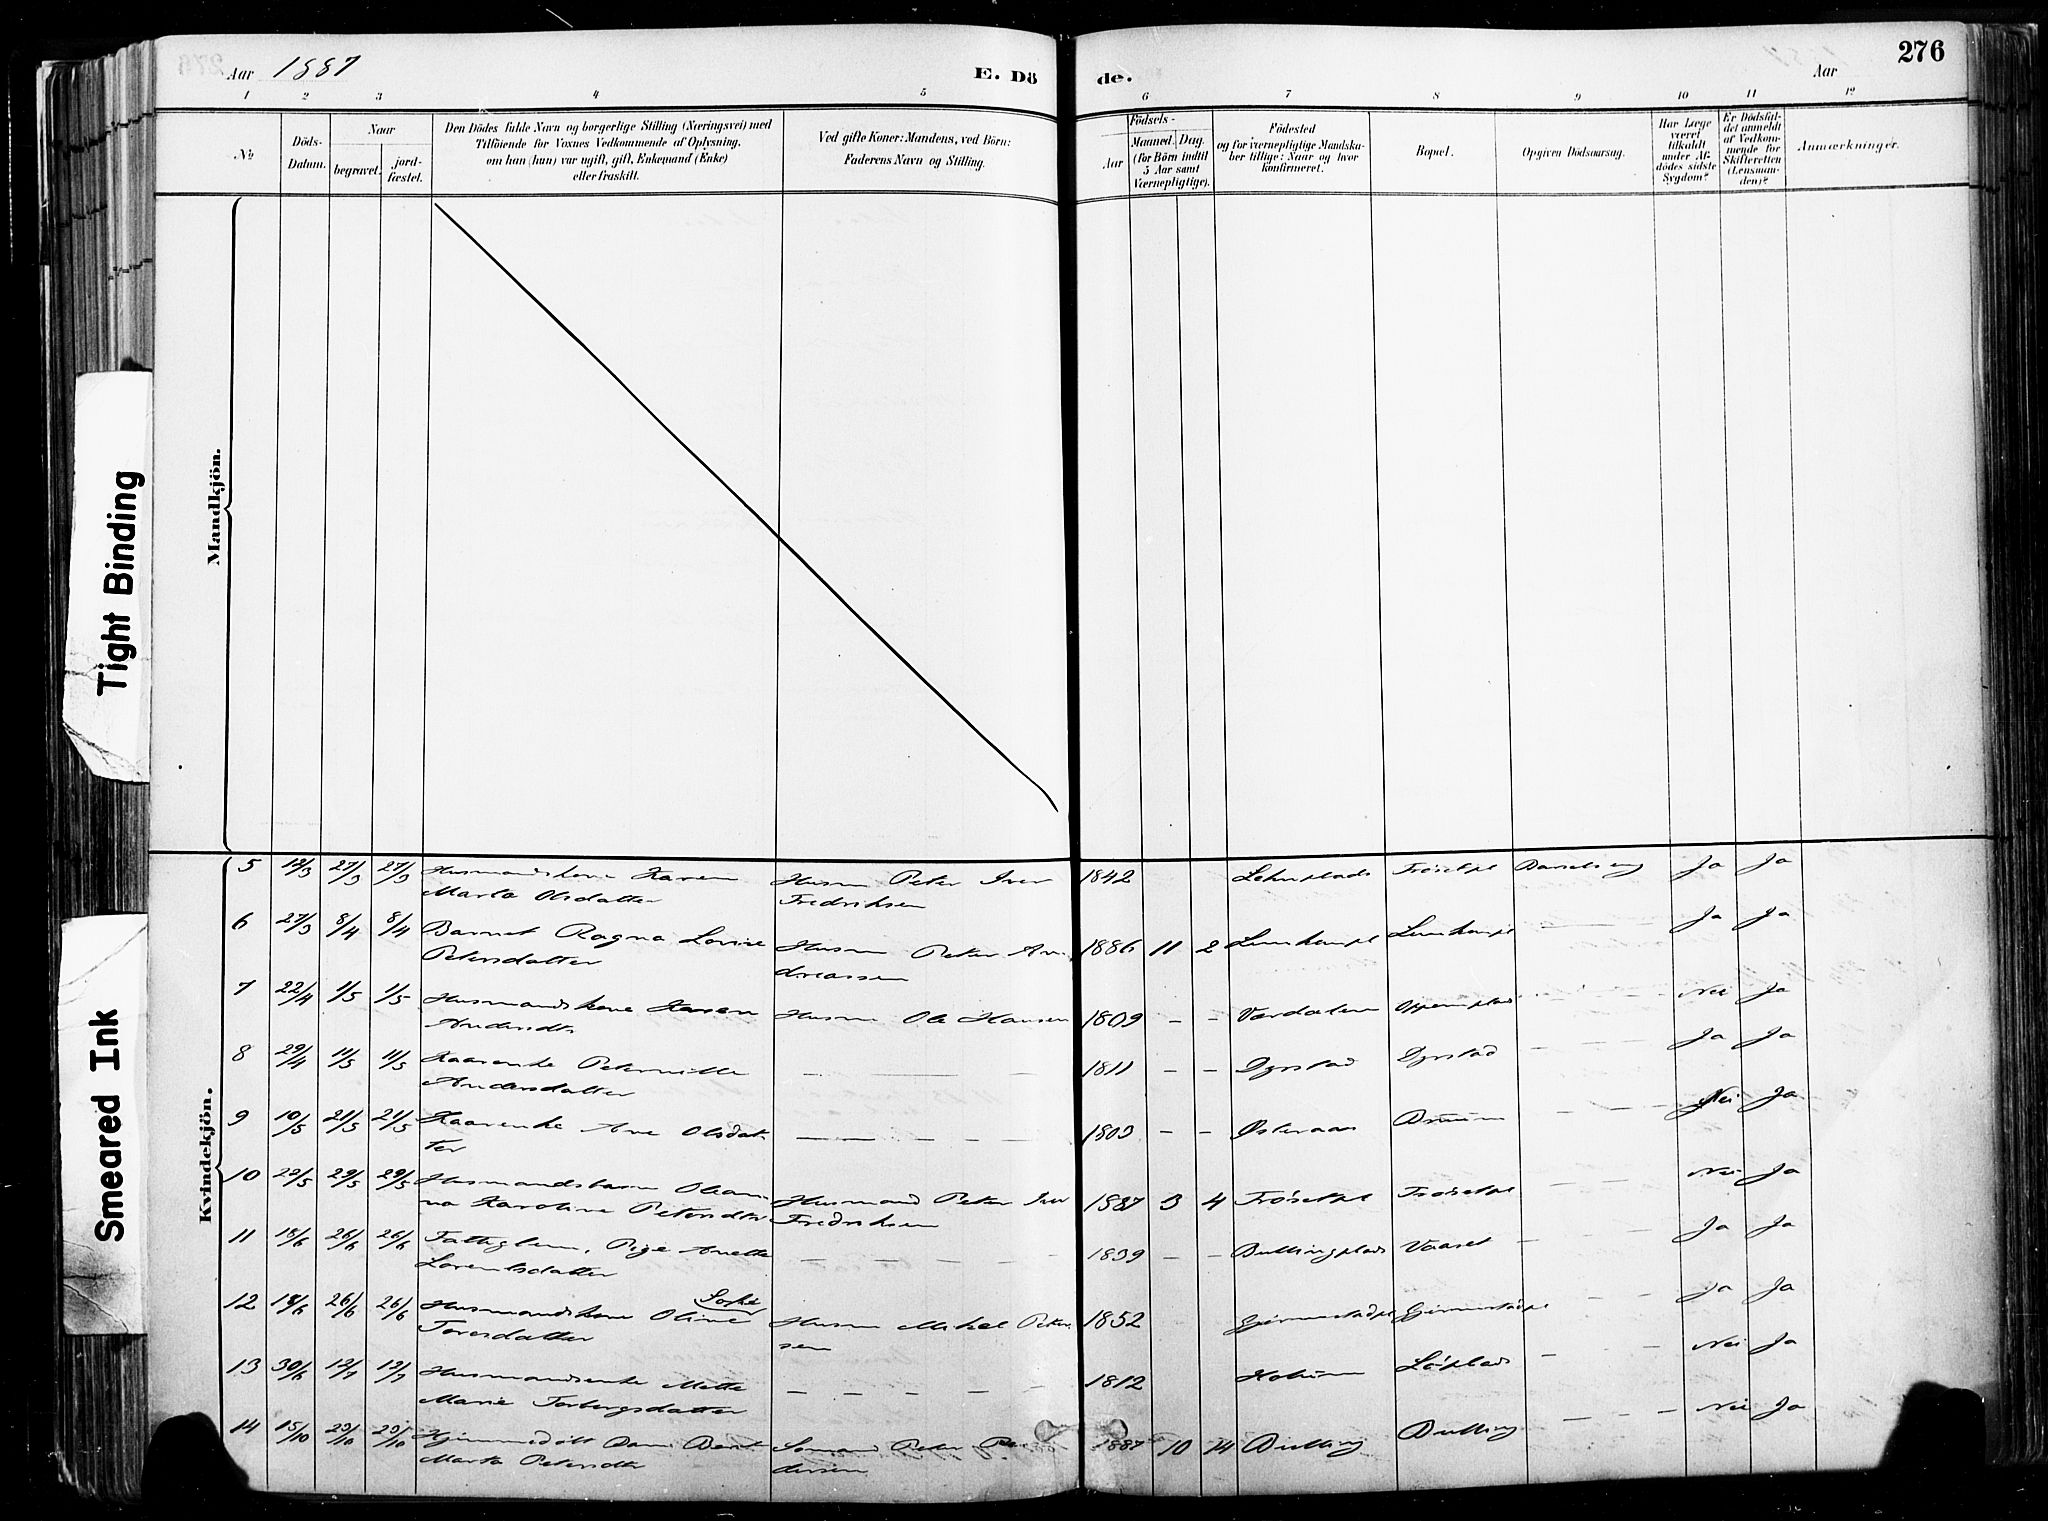 Aar 1887
E. Dö
de.
Aar
276
1 2 3 4 5 6 7 8 9 10 11 12
No
Döds-
Datum.
Naar
begravet.
jord-
fæstet.
Den Dödes fulde Navn og borgerlige Stilling (Næringsvei) med
Tilföiende for Voxnes Vedkommende af Oplysning,
om han (hun) var ugift, gift, Enkemand (Enke)
eller fraskilt.
Ved gifte Koner: Mandens, ved Börn:
Faderens Navn og Stilling.
Födsels-
Aar
Maaned. Dag.
(for Börn indtil
5 Aar samt
Værnepligtige).
Födested
og for værnepligtige Mandska-
ber tillige: Naar og hvor
konfirmeret.
Bopæl.
Opgiven Dödsaarsag.
Har Læge
været
tilkaldt
under Af-
dödes sidste
Sygdom?
Er Dödsfal-
det anmeldt
af Vedkom-
mende for
Skifteretten
(Lensman-
den)?
Anmærkninger.
Mandkjön.
Kvindekjön.
Tight Binding
Smeared Ink
5 12/3 27/3 27/3 Husmandskone Karen Husm Peter Iver 1842 Trösetpl Barselseng Ja Ja
Marta Olsdatter Fredriksen
6 27/3 8/4 8/4 Barnet Ragna Lovise Husm Peter An- 1886 11 2 — Ja Ja
Petersdatter dreassen
7 22/4 1/5 1/5 Husmandskone Karen Husm Ole Hansen 1809 – – Værdalen — Nei Ja
Andersdtr
8 29/4 11/5 11/5 Kaarenke Peternille — 1811 – – Dyrstad Dyrstad — Ja Ja
Andersdatter
9 10/5 21/5 21/5 Kaarenke Ane Olsdat- — 1803 – – Østeraas — Nei Ja
ter
10 22/5 29/5 29/5 Husmandsbarn Olean- Husmand Peter Iver 1887 3 4 Trösetpl Trösetpl — Nei Ja
na Karoline Petersdtr Fredriksen
11 18/6 26/6 26/6 Fattiglem, Pige Anette — 1839 – – Bullingplads Vaaset — Ja Ja
Lorentsdatter
12 18/6 26/6 26/6 Husmandskone Oline Sofie Husm Mikal Peter- 1852 Gjermstadpl Gjermstadpl — Ja Ja
Toresdatter sen
13 30/6 12/7 12/7 Husmandsenke Mette — 1812 — Nei Ja
Marie Torbergsdatter
14 15/10 23/10 23/10 Hjemmedöbt Barn Bent Somand Peter Pe- 1887 10 14 Bulling Bulling — Nei Ja
Marta Petersdtr dersen